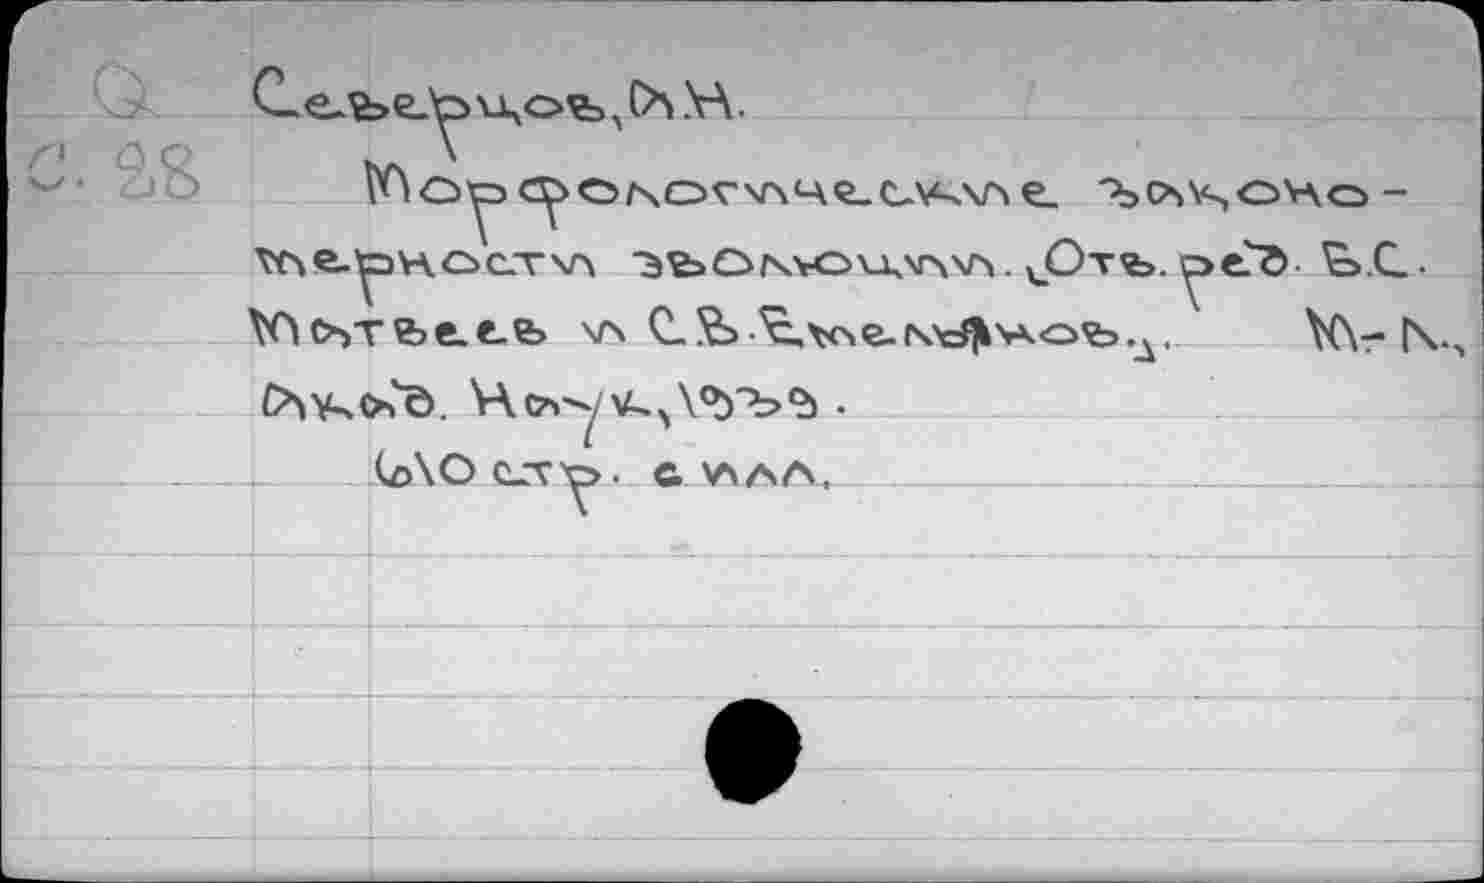 Северцов, А.Н.
Морфологические законо-
мерности эволюции. Отв. ред. Б.С.
Матвеев и С.В. Емельянов.
М.-Л.,
Акад. Наук, 1939.
610 стр. с илл.